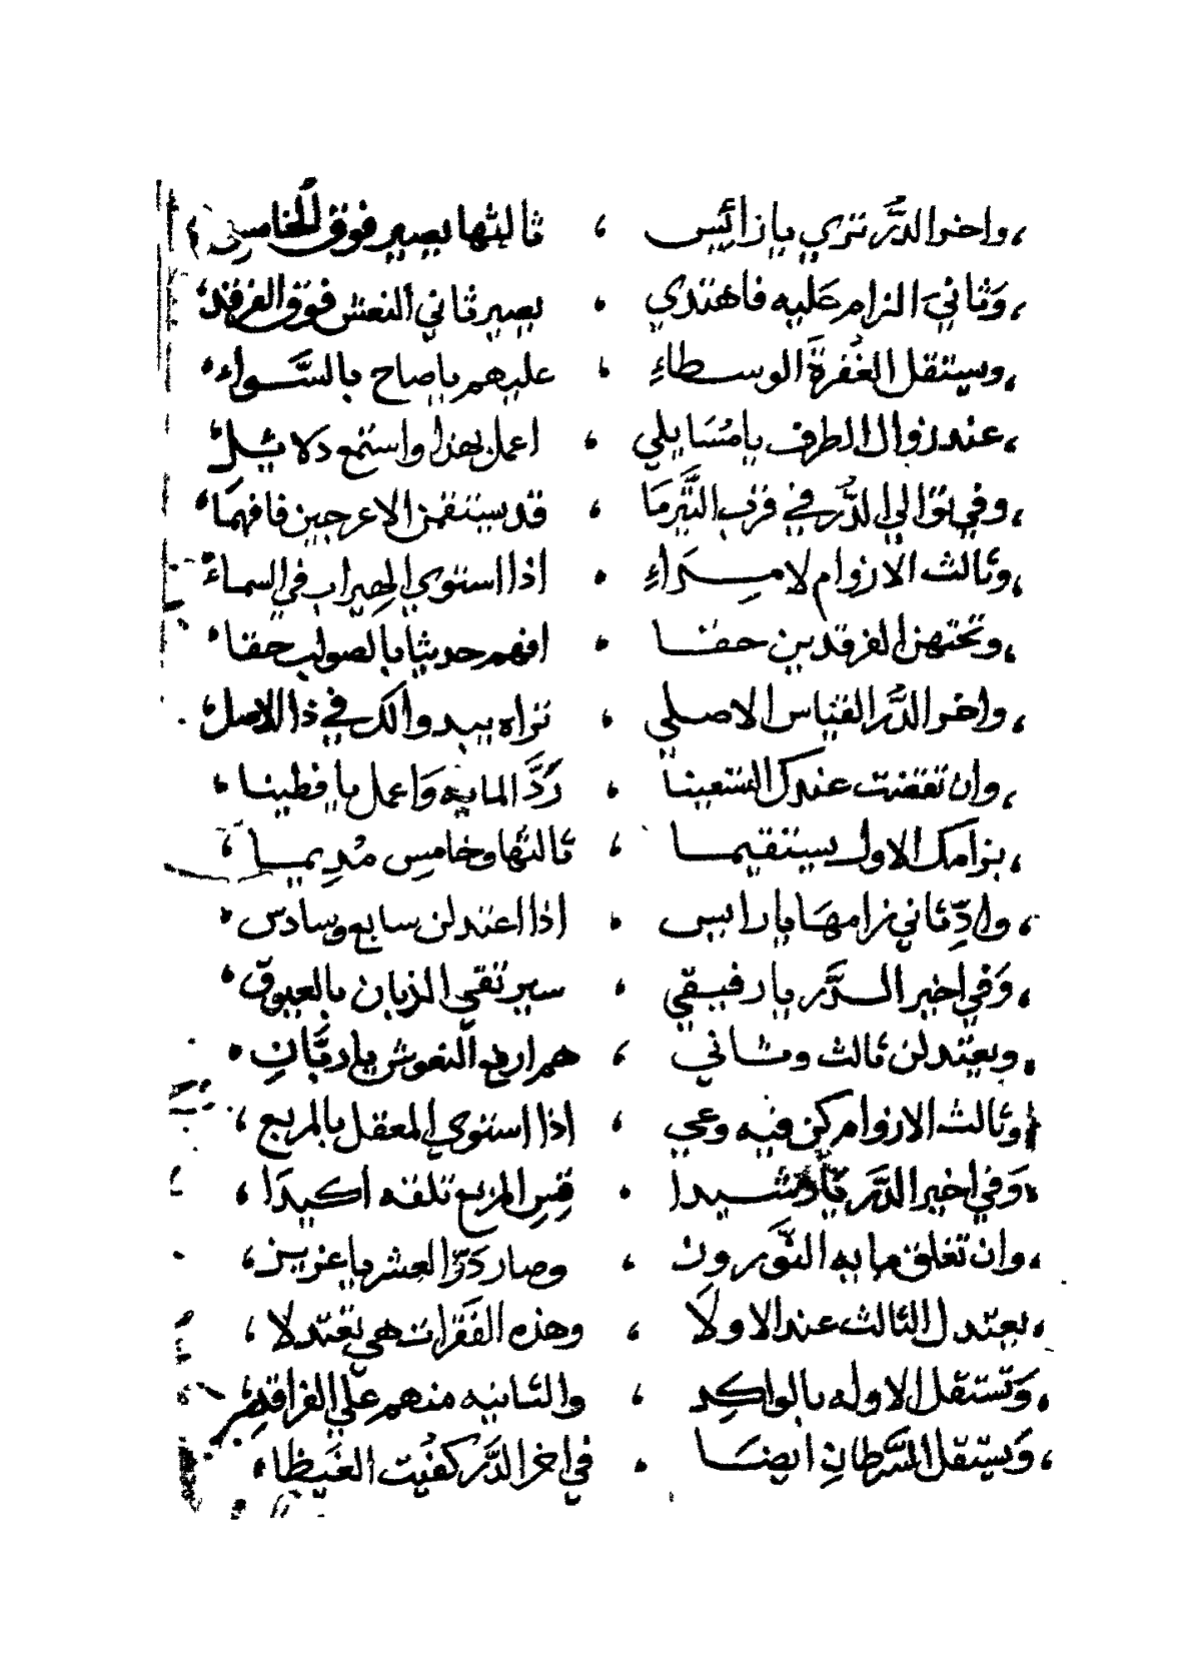 واخر الدَّر تري يا زائيس ، ثالثها يصير فوق الخامس
وَثاني الزام عَليه فاهتدي ، يصير ثاني النعش فوق الفرقد
ويستقل الغُفرة الوسطاءِ ، عليهم يا صاح بالسَّواء
عند زوال الطرف يا مُسَايلي ، اعمل بهذا واستمع دلائيل
وفي توالي الدَّر في قرب التَّيرمَا ، قد يستقمن الاعرجين فافهمَا
وثالث الازوام لا مِراءِ ، اذا استوي الحيراب في السماء
وتحتهن الفرقدين حقا ، افهم حديثا بالصواب حقا
واخر الدَّر القياس الاصلي ، تراه يبدو الك في ذا الاصل
وان تقضت عندك التسعينا ، رُدَّ المايه وَاعمل يا فطينا
بزامك الاول يستقيما ، ثالثها وخامس مُدِيما
واد ثاني زامهَا يا رايس ، اذا اعتدلن سابع وسادس
وَفي اخير الدَّر يا رفيقي ، سيرتقي الزبان بالعيوق
ويعتدلن ثالث وثاني ، هم اربع النعوش يا ربَّانِ
وثالث الازوام كن فيه وعي ، اذا استوي المعقل بالمربع
وَفي اخير الدَّر شيدا ، قِسِ المربع تلقه اكيدَا
وان تغلق مايه النَّورون ، وصار دَرّ العشر يا عزيز
يعتدل الثالث عند الاولَا ، وهذه الفقرات هي تعتدلا
وَتستقل الاوله بالواكِد ، والثانيه منهم علي الفراقد
وَيستقل السَّرطانِ ايضَا ، في اخر الدَّر كفيت الغَيظاء